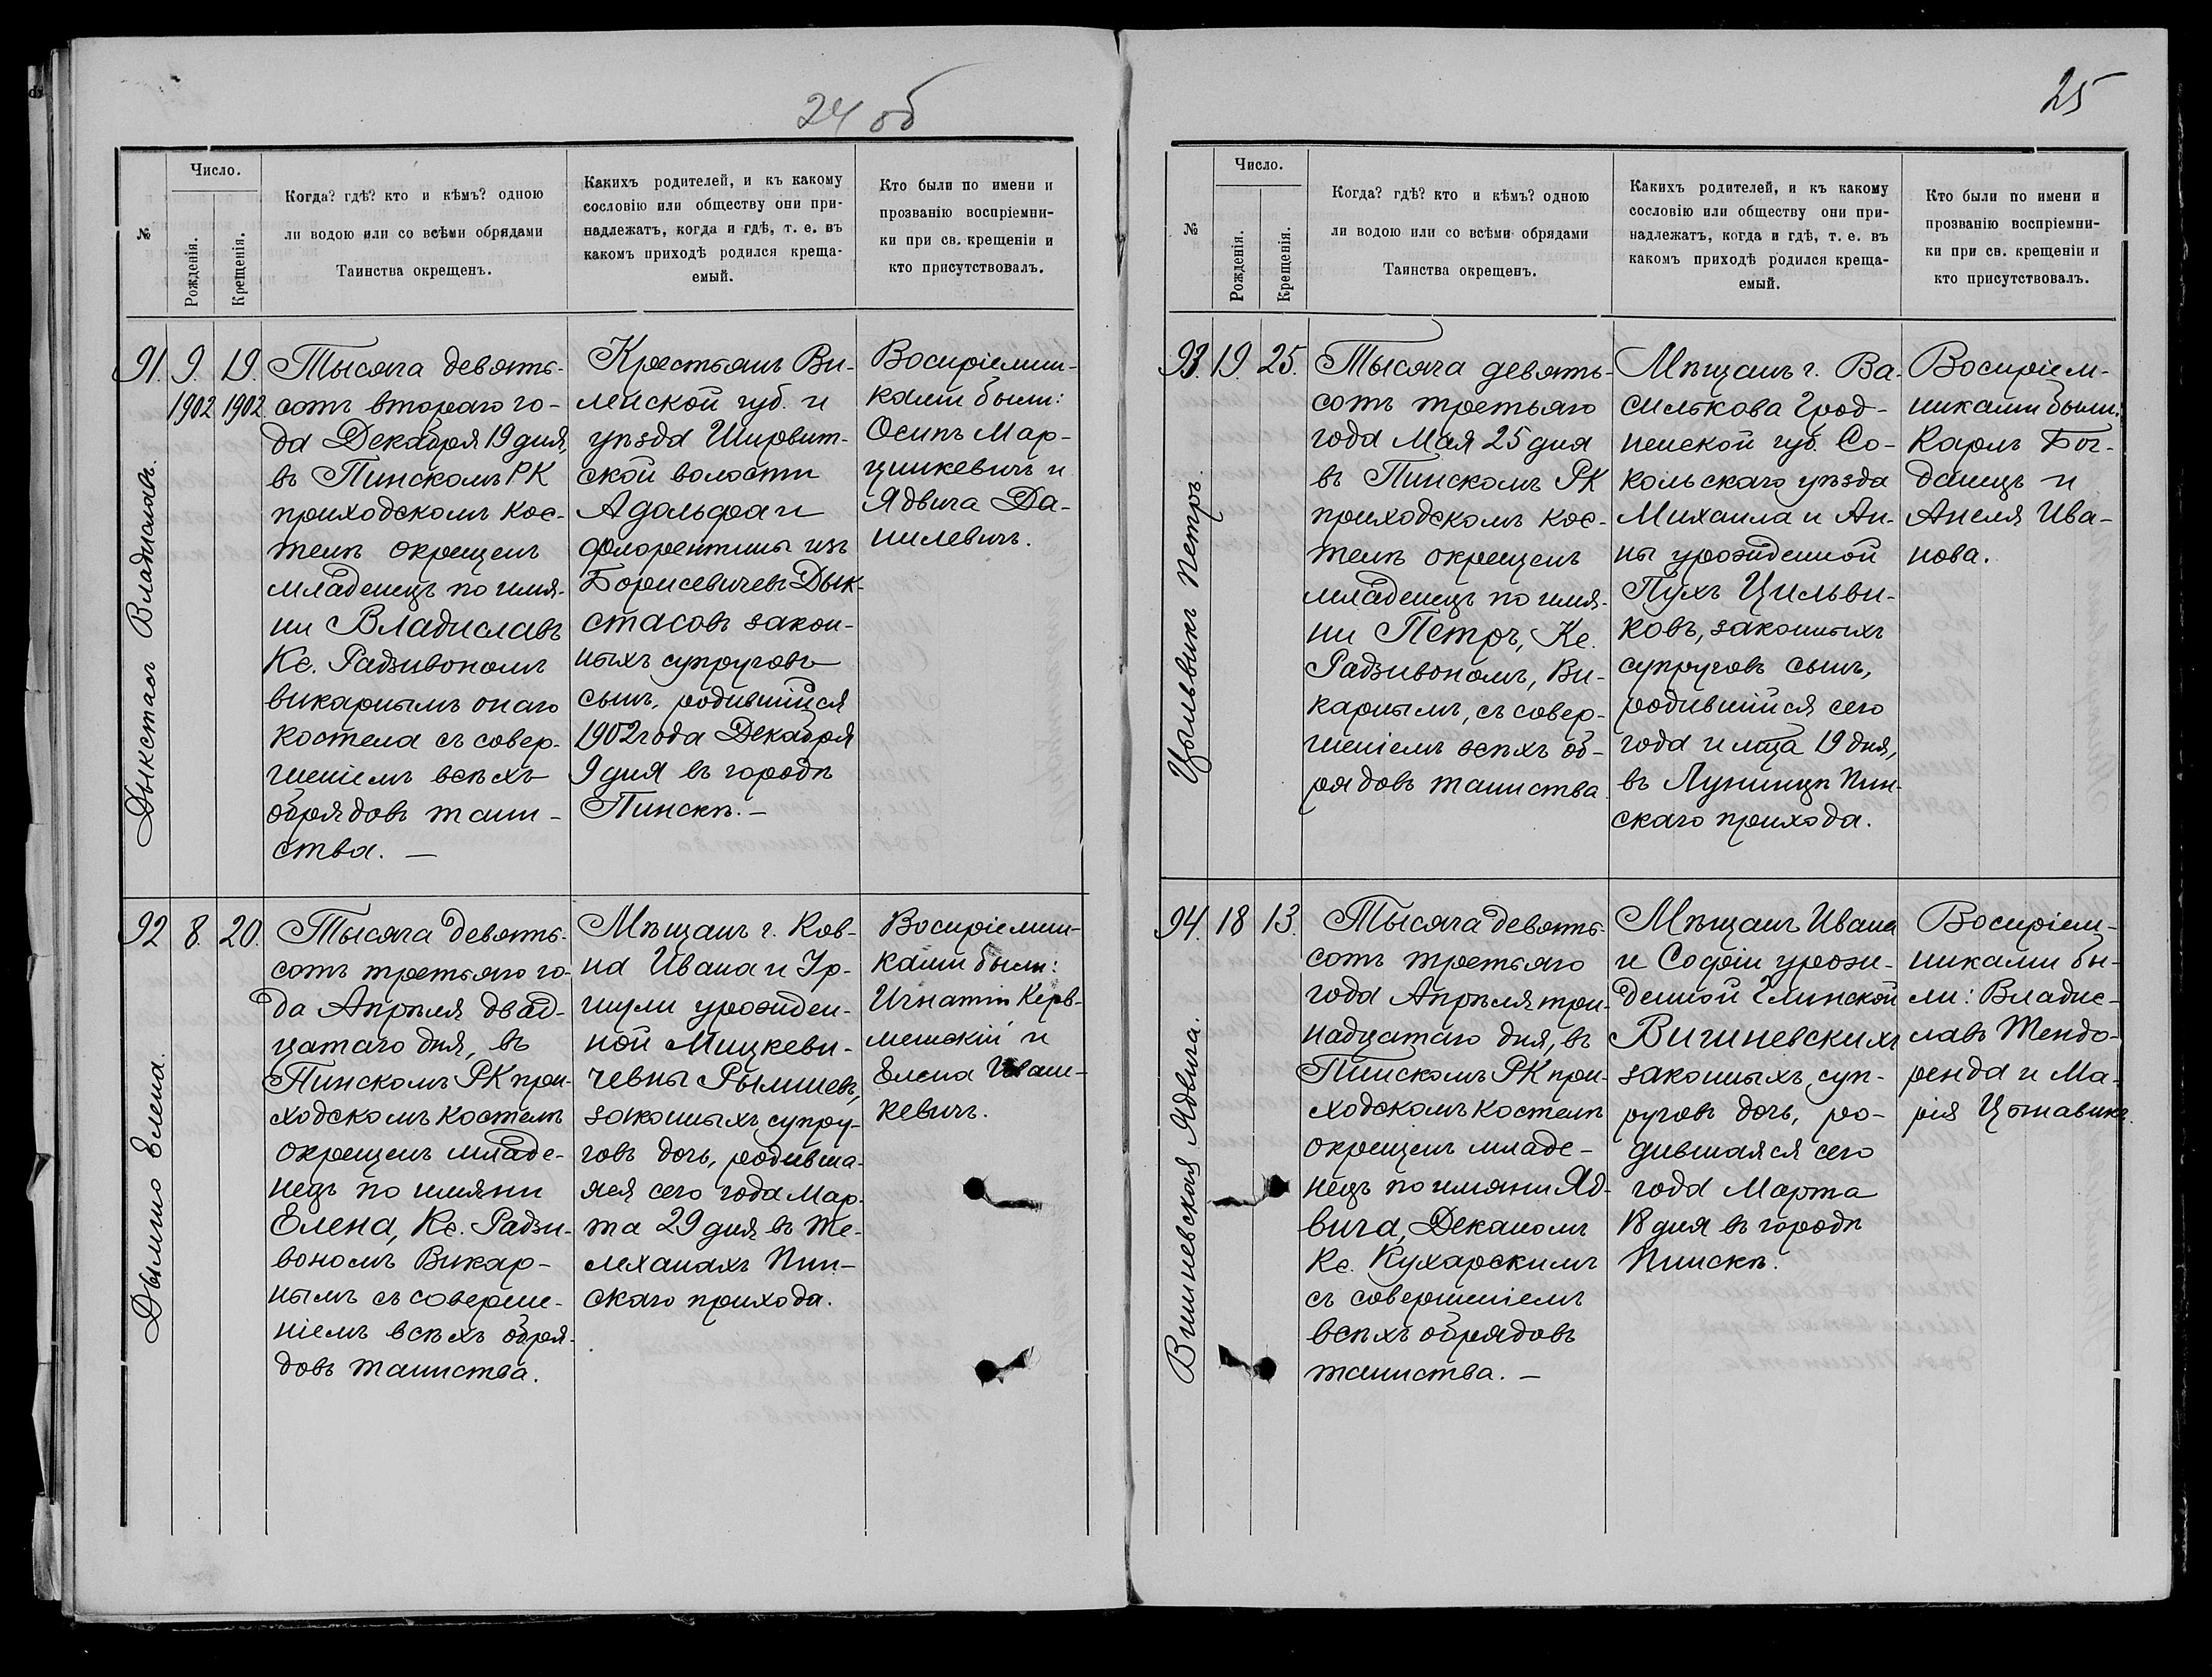 24 об
№
Число.
Рожденія.
Крещенія.
Когда? гдѣ? кто и кѣмъ? одною
ли водою или со всѣми обрядами
Таинства окрещенъ.
Какихъ родителей, и къ какому
сословію или обществу они при-
надлежатъ, когда и гдѣ, т. е. въ
какомъ приходѣ родился креща-
емый.
Кто были по имени и
прозванію воспріемни-
ки при св. крещеніи и
кто присутствовалъ.
91. 9. 19.
1902 1902
Дыкстасъ Владиславъ.
Тысяча девять-
сотъ второго го-
да Декабря 19 дня,
въ Пинскомъ РК
приходскомъ кос-
телѣ окрещенъ
младенецъ по имя-
ни Владиславъ
Кс. Радзивономъ
викарнымъ онаго
костела съ совер-
шеніемъ всѣхъ
обрядовъ таин-
ства. —
Крестьянъ Ви-
ленской губ. и
уѣзда Ширвинт-
ской волости
Адольфа и
Флорентины изъ
Борисевичевъ Дык-
стасовъ закон-
ныхъ супруговъ
сынъ, родившійся
1902 года Декабря
9 дня въ городѣ
Пинскѣ. —
Воспріемни-
ками были:
Осипъ Мар-
цинкевичъ и
Ядвига Да-
нилевичъ.
92 8. 20.
Дымшо Елена.
Тысяча девять-
сотъ третьяго го-
да Апрѣля двад-
цатаго дня, въ
Пинскомъ РК при-
ходскомъ костелѣ
окрещенъ младе-
нецъ по имяни
Елена, Кс. Радзи-
вономъ Викар-
нымъ съ соверше-
ніемъ всѣхъ обря-
довъ таинства.
Мѣщанъ г. Ков-
на Ивана и Ур-
шули урожден-
ной Мицкеви-
чевны
законныхъ супру-
говъ дочь, родивша-
яся сего года Мар-
та 29 дня въ Те-
леханахъ Пин-
скаго прихода.
Воспріемни-
ками были:
Игнатій
и
Елена Иваш-
кевичъ.
25
№
Число.
Рожденія.
Крещенія.
Когда? гдѣ? кто и кѣмъ? одною
ли водою или со всѣми обрядами
Таинства окрещенъ.
Какихъ родителей, и къ какому
сословію или обществу они при-
надлежатъ, когда и гдѣ, т. е. въ
какомъ приходѣ родился креща-
емый.
Кто были по имени и
прозванію воспріемни-
ки при св. крещеніи и
кто присутствовалъ.
93. 19. 25.
Цыльвикъ Петръ.
Тысяча девять-
сотъ третьяго
года Мая 25 дня
въ Пинскомъ РК
приходскомъ кос-
телѣ окрещенъ
младенецъ по имя-
ни Петръ, Кс.
Радзивономъ, Ви-
карнымъ, съ совер-
шеніемъ всѣхъ об-
рядовъ таинства.
Мѣщанъ г. Ва-
силькова Грод-
ненской губ. Со-
кольскаго уѣзда
Михаила и Ан-
ны урожденной
Пухъ Цильви-
ковъ, законныхъ
супруговъ сынъ,
родившійся сего
года и мца 19 дня,
въ Лунинцѣ Пин-
скаго прихода.
Воспріем-
никами были:
Карлъ Бог-
данецъ и
Анеля Ива-
нова.
94. 18 13.
Вишневская Ядвига.
Тысяча девять-
сотъ третьяго
года Апрѣля три-
надцатаго дня, въ
Пинскомъ РК при-
ходскомъ костелѣ
окрещенъ младе-
нецъ по имяни Яд-
вига, Деканомъ
Кс. Кухарскимъ
съ совершеніемъ
всѣхъ обрядовъ
таинства. —
Мѣщанъ Ивана
и Софіи урож-
денной Глинской
Вишневскихъ
законныхъ суп-
руговъ дочь, ро-
дившаяся сего
года Марта
18 дня въ городѣ
Пинскѣ.
Воспріем-
никами бы-
ли: Владис-
лавъ Тендо-
ренда и Ма-
рія